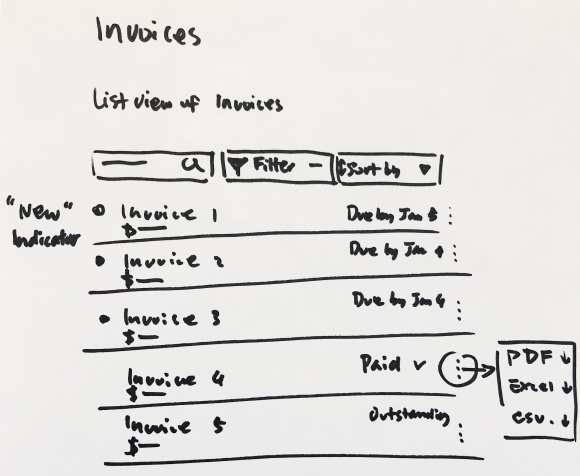 Invoices
List view of Invoices
Filter
Sort by
"New"
Indicator
Invoice 1
Due by Jan
$
Invoice 2
Due by Jan
$
Invoice 3
Due by Jan
$
Invoice 4
Paid ✓
$
Invoice 5
Outstanding
$
PDF ↓
Excel ↓
CSV. ↓